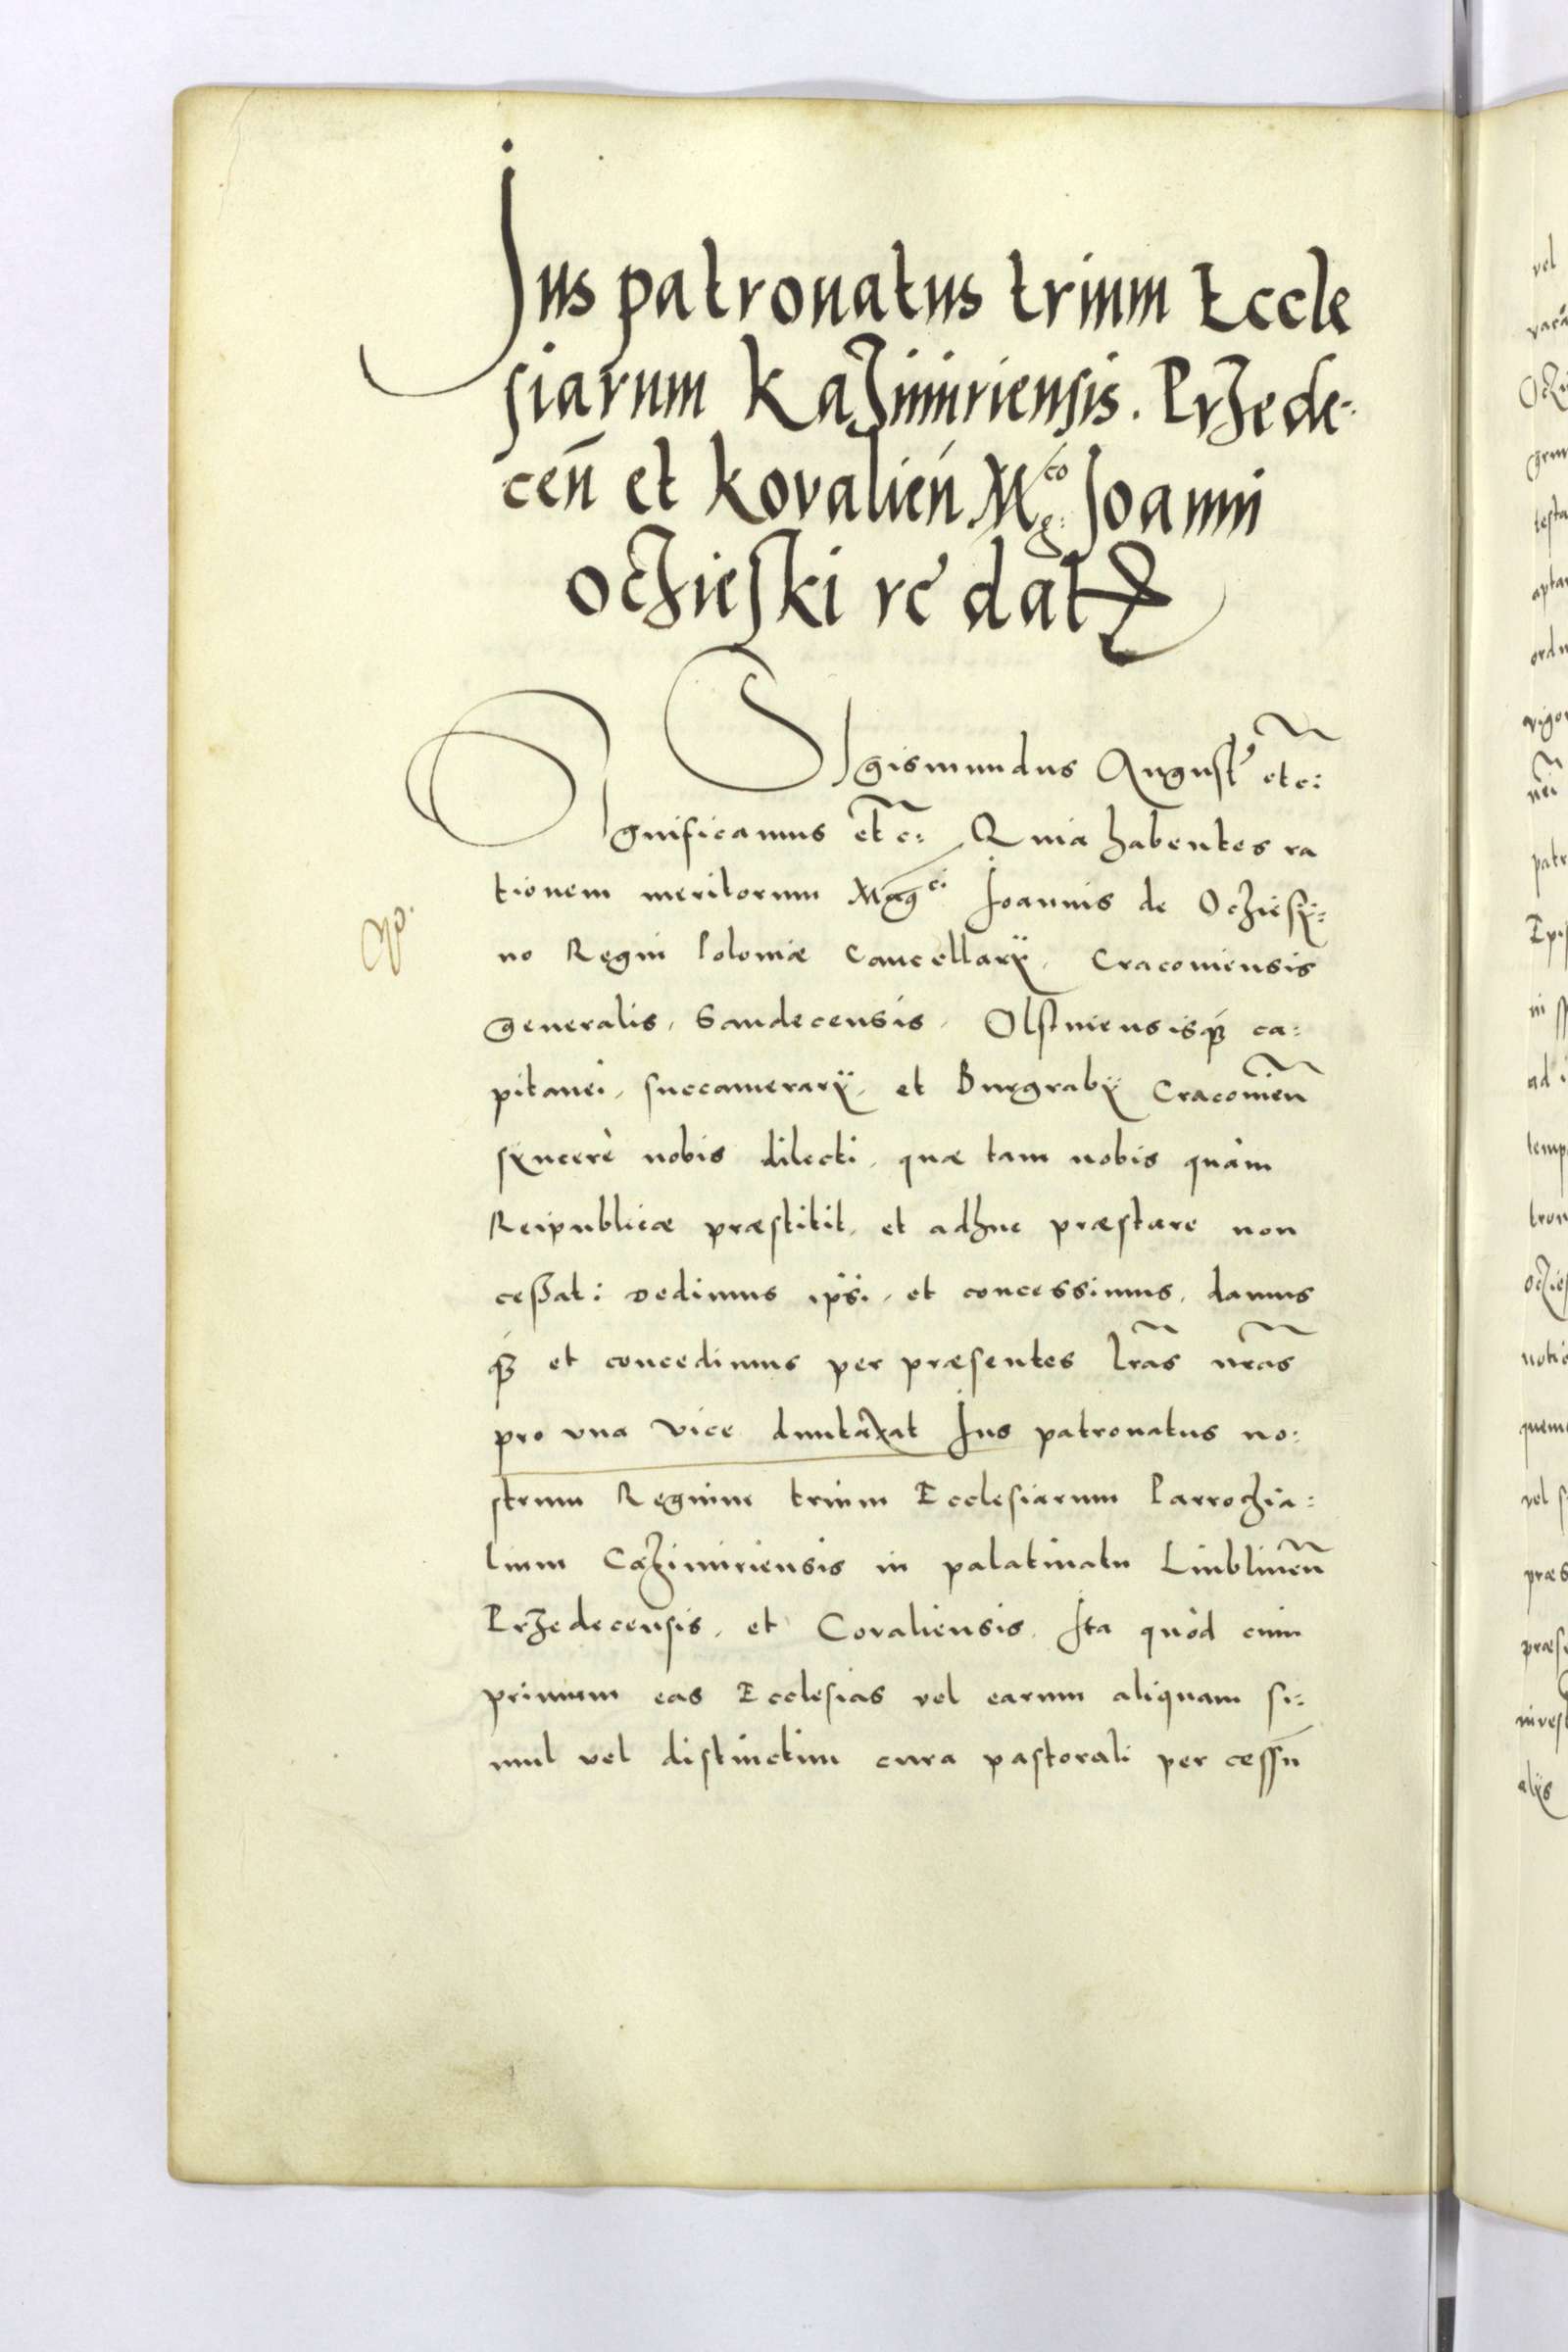 Jus patronatus trium Eccle
siarum Kazimiriensis. Przede-
cen̄ et Kovalień Mg:co Joanni
Oczieski rē dat
Sigismundus August9 etc:
Significamus etc: Quia habentes ra
tionem meritorum Magci Joannis de Oczieszi:
no Regni Poloniæ Cancellarÿ, Cracoviensis
generalis, Sandecensis, Olstinensisq́ꝫ ca:
pitanei, succamerarÿ, et Burgrabÿ Cracovien̄
syncerè nobis dilecti, quæ tam nobis quàm
Reipublicæ præstitit, et adhuc præstare non
ceßat: dedimus ipsi, et concessimus, damus
q́ꝫ et concedimus per præsentes lr̄as nr̄as
pro una vice duntaxat Jus patronatus no:
strum Regium trium Ecclesiarum Parrochia:
lium Cazimiriensis in palatinatu Liublinen̄
Przedecensis, et Covaliensis. Ita quòd cum
primum eas Ecclesias vel earum aliquam si:
mul vel distinctim cura pastorali per cessū